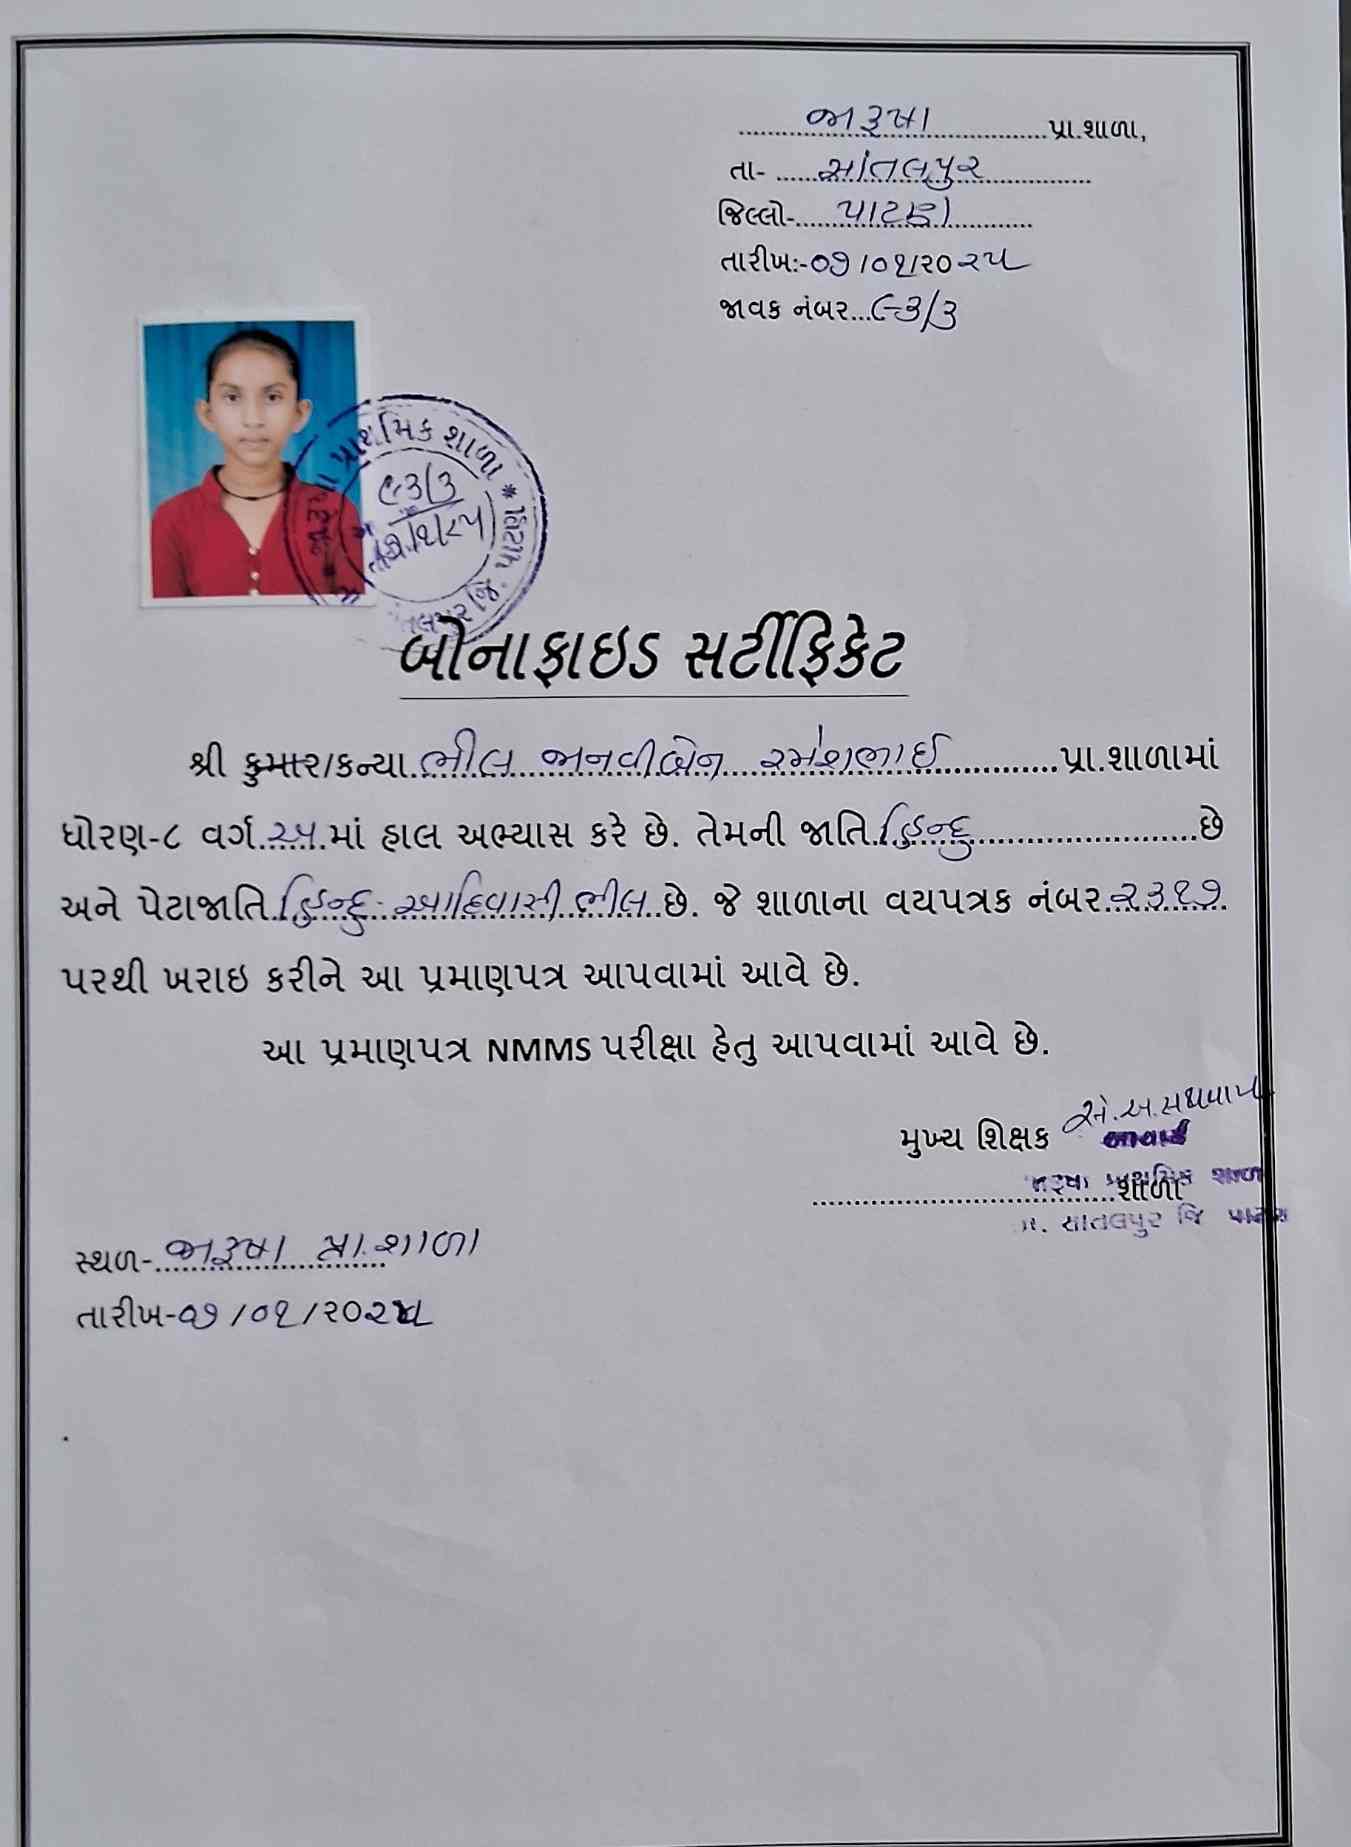 જારૂષા પ્રા.શાળા,
તા- સાંતલપુર
જિલ્લો- પાટણ
તારીખ:-૦૭/૦૧/૨૦૨૫
જાવક નંબર...૯૩/૩
પ્રાથમિક શાળા * સાંતલપુર જિ. પાટણ
૯૩/૩
બોનાફાઇડ સર્ટીફિકેટ
શ્રી કુમાર/કન્યા ભીલ જાનવીબેન રમેશભાઈ પ્રા.શાળામાં
ધોરણ-૮ વર્ગ અ માં હાલ અભ્યાસ કરે છે. તેમની જાતિ હિન્દુ છે
અને પેટાજાતિ હિન્દુ-આદિવાસી ભીલ છે. જે શાળાના વયપત્રક નંબર ૨૩૧૭
પરથી ખરાઇ કરીને આ પ્રમાણપત્ર આપવામાં આવે છે.
આ પ્રમાણપત્ર NMMS પરીક્ષા હેતુ આપવામાં આવે છે.
મુખ્ય શિક્ષક
આચાર્ય
પ્રાથમિક શાળા
શાળા
સાંતલપુર જિ પાટણ
સ્થળ- જારૂષા પ્રા.શાળા
તારીખ-૦૭/૦૧/૨૦૨૫